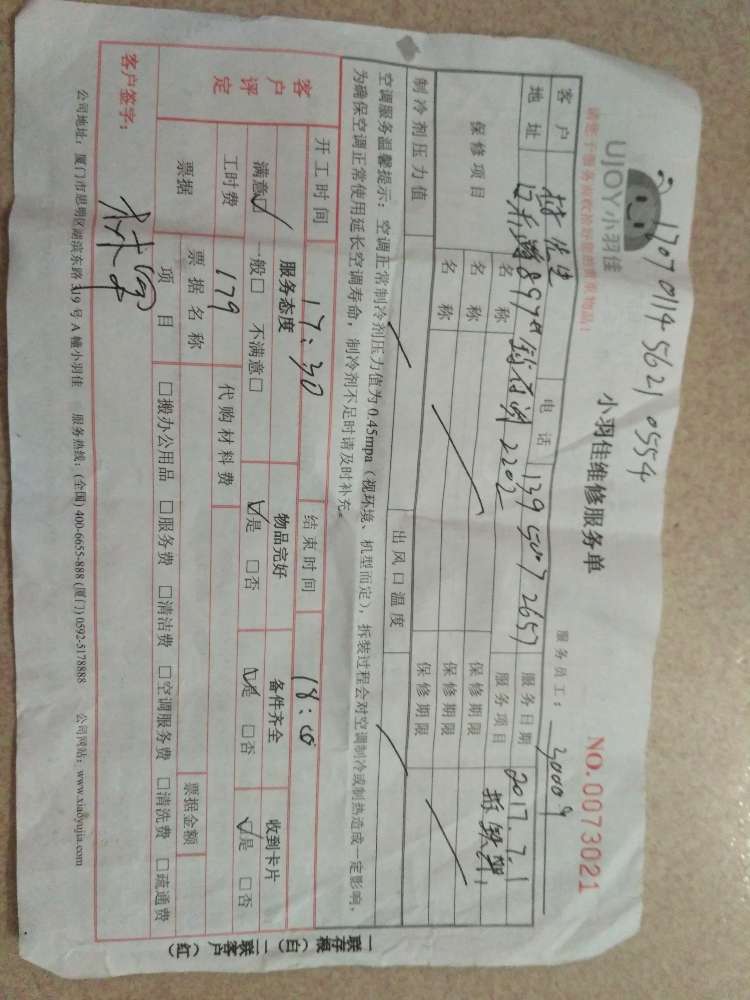 1707 0114 5621 0554
UJOY小羽佳
小羽佳维修服务单
NO.0073021
服务员工：30009
客户 先生 电话 139 5007 2657 服务日期 2017.7.1
地址 897# 2202 服务项目 拆 架
保修项目 名称 保修期限
名称 保修期限
名称 保修期限
制冷剂压力值 出风口温度
空调服务温馨提示：空调正常制冷剂压力值为0.45mpa（视环境、机型而定），拆装过程会对空调制冷或制热造成一定影响，
为确保空调正常使用延长空调寿命，制冷剂不足时请及时补充。
开工时间 17:30 结束时间 18:00
客户评定 服务态度 物品完好 备件齐全 收到卡片
满意☑ 一般□ 不满意□ ☑是 □否 ☑是 □否 ☑是 □否
工时费 179 代购材料费
票据 票据名称 票据金额
项目 □搬办公用品 □服务费 □清洁费 □空调服务费 □清洗费 □疏通费
客户签字：
公司地址：厦门市思明区湖滨东路319号A幢小羽佳 服务热线：(全国) 400-6655-888 (厦门) 0592-5178888 公司网站：www.xiaoyujia.com
一联存根（白） 二联客户（红）